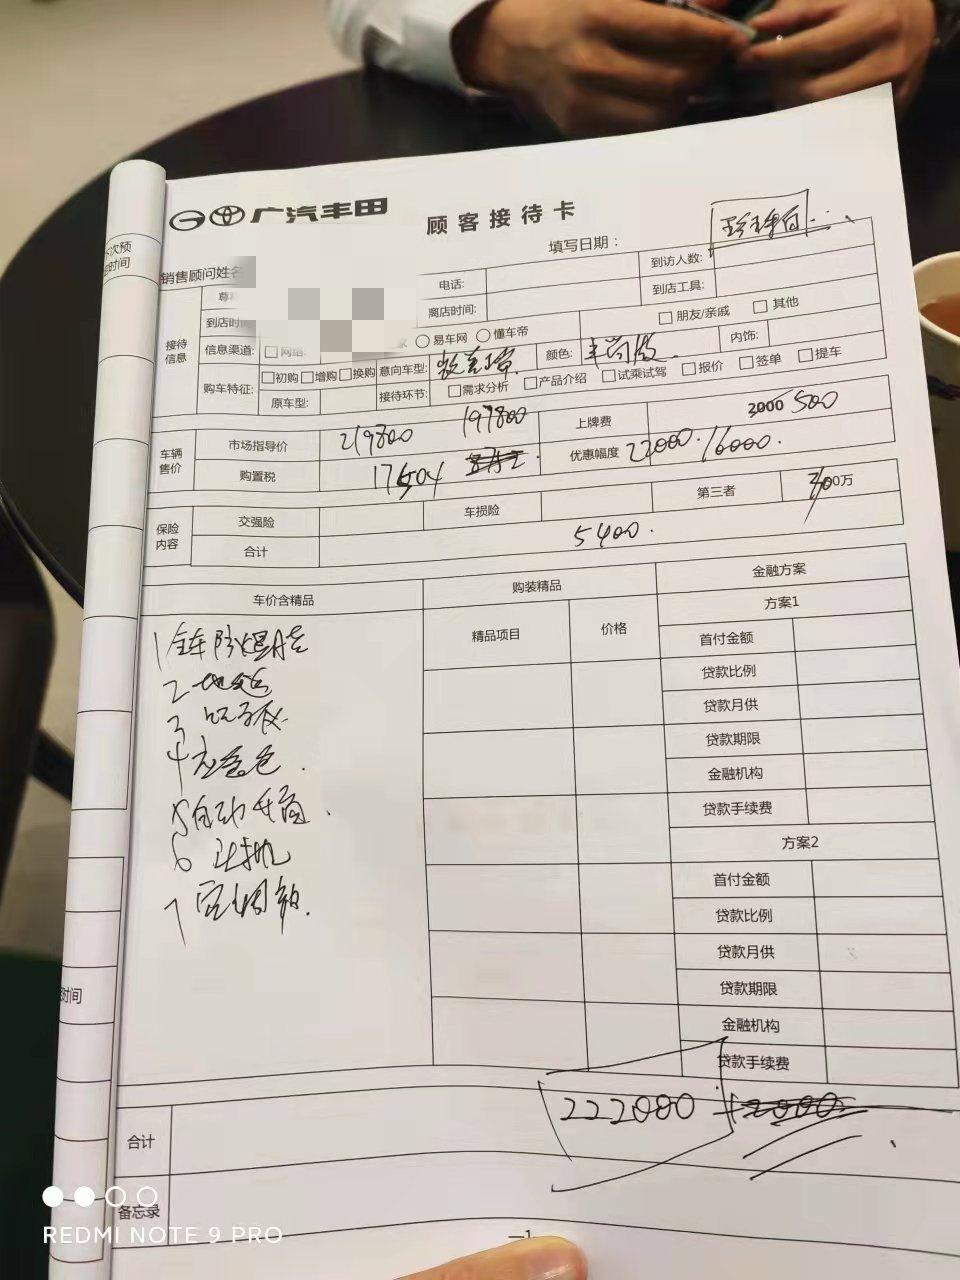 广汽丰田
顾客接待卡
珍珠白
填写日期：
次预
时间
销售顾问姓名
电话:
到访人数:
到店时间
离店时间:
到店工具:
接待
信息
信息渠道:
网络:
易车网
懂车帝
朋友/亲戚
其他
购车特征:
初购
增购
换购
意向车型:
颜色:
内饰:
原车型:
接待环节:
需求分析
产品介绍
试乘试驾
报价
签单
提车
车辆
售价
市场指导价
219800
197800
上牌费
2000 500
购置税
17504
优惠幅度
22000.
16000.
保险
内容
交强险
车损险
第三者
00万
合计
5400.
车价含精品
购装精品
金融方案
精品项目
价格
方案1
首付金额
贷款比例
贷款月供
贷款期限
金融机构
贷款手续费
方案2
首付金额
贷款比例
贷款月供
贷款期限
金融机构
贷款手续费
1
2
3
4 应急包.
5 自动
6
7
时间
合计
222000 +2000
备忘录
—1
REDMI NOTE 9 PRO